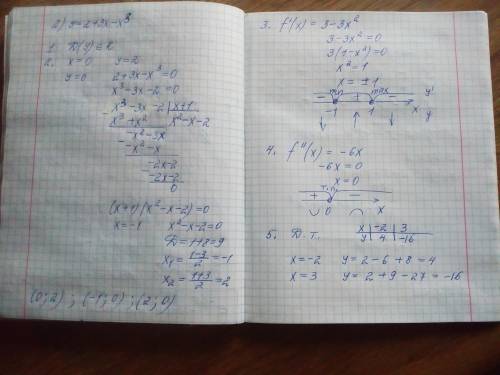 2) y = 2+3x-x³
1. D(y) ∈ R
2. x=0 y=2
y=0 2+3x-x³=0
x³-3x-2=0
x³-3x-2 | x+1
x³+x² x²-x-2
-x²-3x
-x²-x
-2x-2
-2x-2
0
(x+1)(x²-x-2)=0
x=-1 x²-x-2=0
D=1+8=9
x₁ = (1-3)/2 = -1
x₂ = (1+3)/2 = 2
(0; 2) ; (-1; 0) ; (2; 0)
3. f'(x) = 3-3x²
3-3x²=0
3(1-x²)=0
x²=1
x=±1
min max
- + - y'
-1 1 x y
↓ ↑ ↓
4. f''(x) = -6x
-6x=0
x=0
т.п.
+ -
∪ 0 ∩ x
5. Д.т. x | -2 | 3
y | 4 | -16
x=-2 y=2-6+8=4
x=3 y=2+9-27=-16